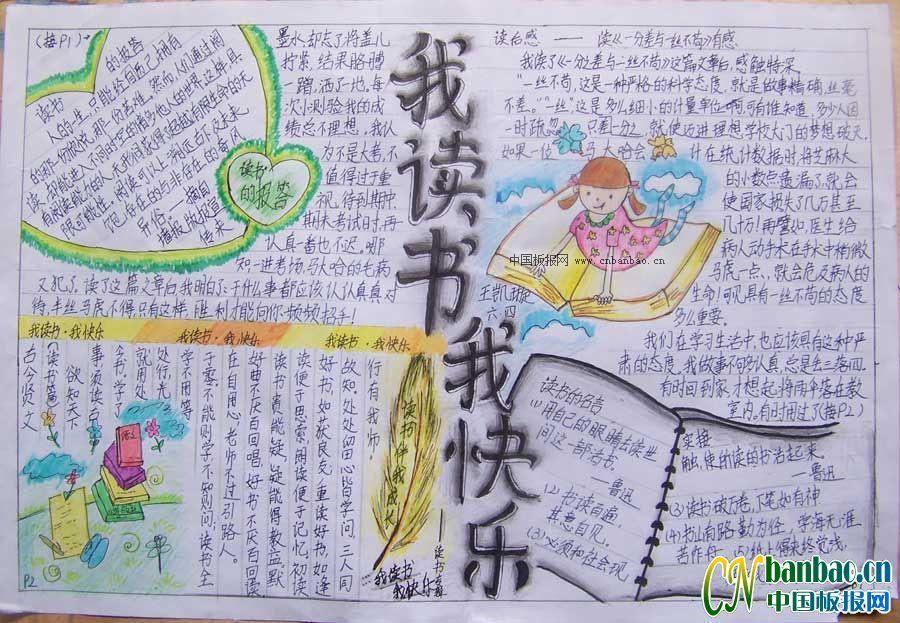 我读书 我快乐
(接P1)
的报告
读书
人的一生,只能给自己拥有
的那份愉悦,那份苦难,然而,人们通过阅
读,却能进入不同时空的诸多他人的世界。这样,具
有阅读能力的人,无形间获得了超越有限生命的无
限可能性。
读书
的报答
墨水,却忘了将盖儿
拧紧,结果胳膊一
蹭,洒了一地,每
次小测验我的成
绩总不理想,我认
为不是大考,不
值得过于重
视,得到期中
期末考试时,再
认真一些也不迟。哪
知一进考场,马大哈的毛病
又犯了,读了这篇文章后,我明白了:干什么事都应该认认真真对
待,半丝马虎不得,只有这样,胜利才能向你频频招手!
读后感 —— 读《一分差与一丝不苟》有感
我读了《一分差与一丝不苟》这篇文章后,感触特深。
"一丝不苟,这是一种严格的科学态度,就是做事精确,丝毫
不差。""一丝"这是多么细小的计量单位啊,可有谁知道,多少人因
一时疏忽 只差一分,就使迈进理想学校大门的梦想破灭。
如果一位 马大哈会 计在统计数据时,将芝麻大
的小数点遗漏了,就会
使国家损失了几万甚至
几十万!再譬如,医生给
病人动手术,在手术中稍微
马虎一点、就会危及病人的
生命!可见具有一丝不苟的态度
多么重要。
我们在学习生活中,也应该具有这种严
肃的态度。我做事不够认真,总是丢三落四。
有时回到家,才想起将雨伞落在教
室内,有时用过了(接P2)
中国板报网
www.cnbanbao.cn
王凯旋
六·四
我读书·我快乐
我读书·我快乐
我读书·我快乐
行有我师。
故知。处处留心皆学问,三人同
好书,如获良友;重读好书,如逢
读便于思索,阅读便于记忆。初读
读书贵能疑,疑能得教益。默
好曲不厌百回唱,好书不厌百回读
在自用心,老师不过引路人。
于零,不能则学,不知则问;读书全
学不用等
处行光
就用处
今书,学了
事,须读古
欲知天下
读书篇
古今贤文
语文
读书伴我成长
——读书系
我读书
我快乐
P2
读书的名言
(1)用自己的眼睛去读世
间这一部活书。
——鲁迅
(2)书读百遍,
其意自见。
(3)必须和社会现
实接
触,使所读的书活起来。
——鲁迅
(3)读书破万卷,下笔如有神
(4)书山有路勤为径,学海无涯
苦作舟。(5)纸上得来终觉浅
CN banbao.cn
中国板报网